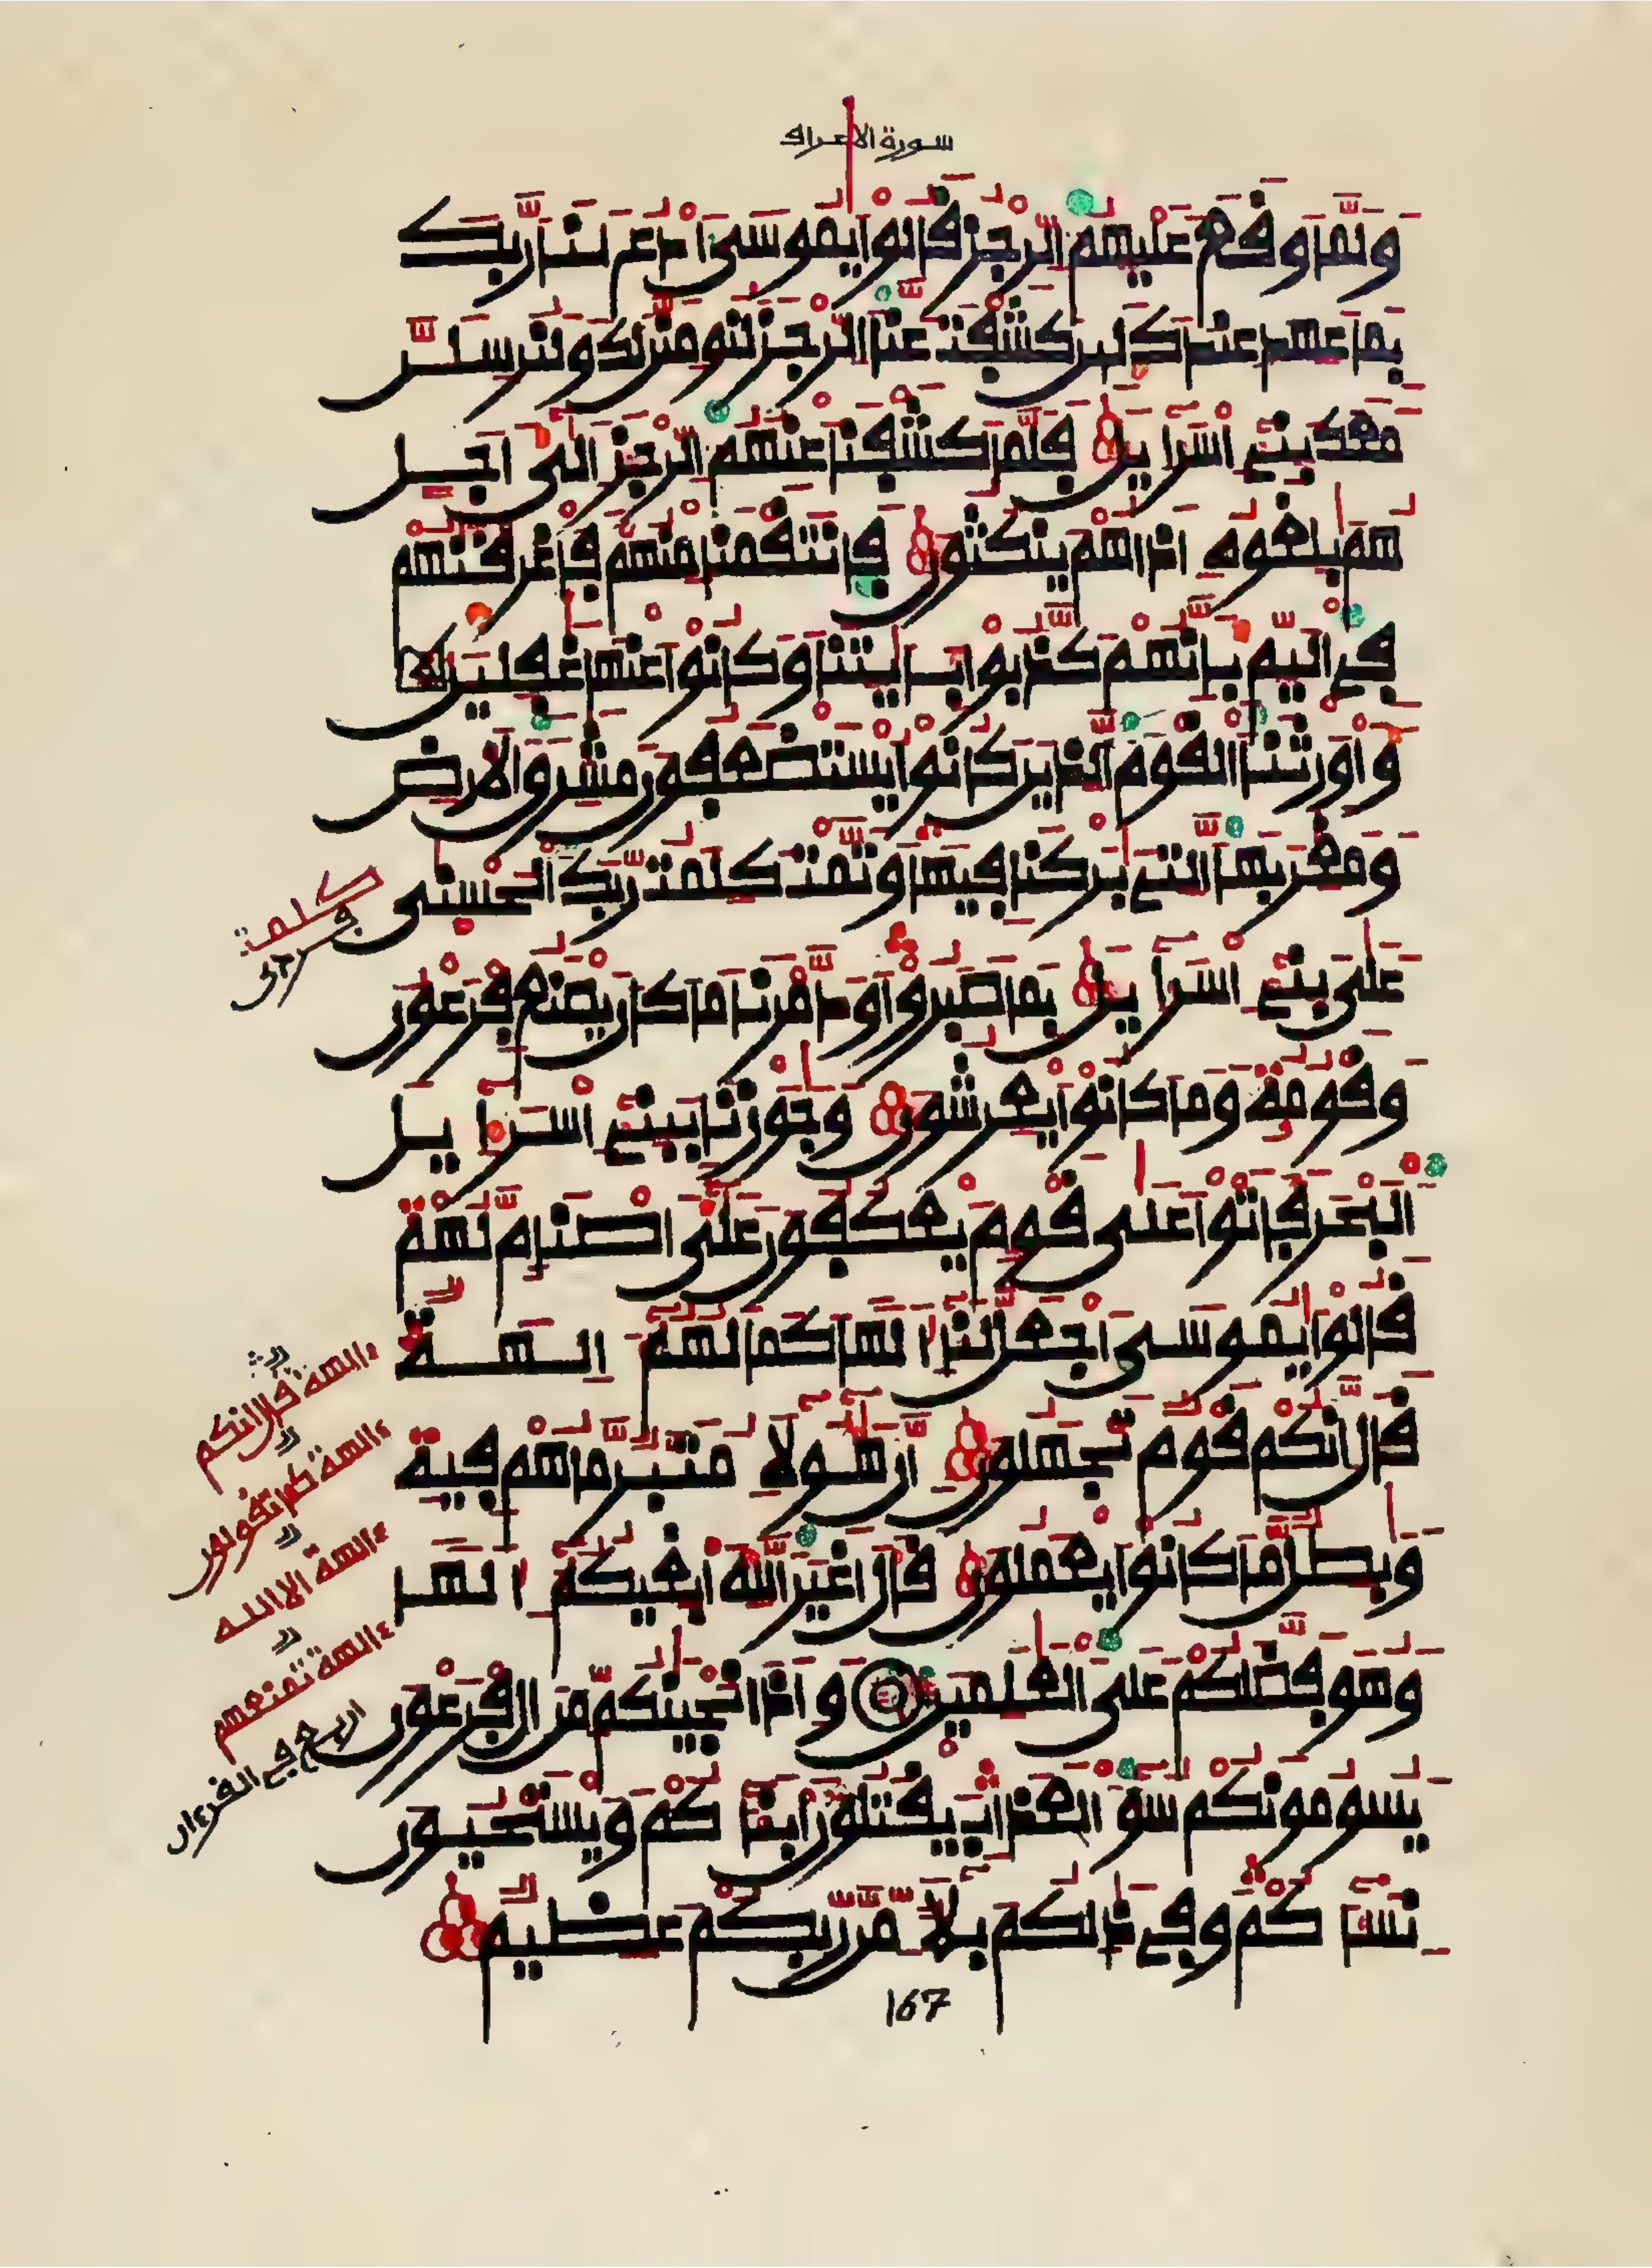 سورة الاعراف
وَلَمَّا وَقَعَ عَلَيْهِمُ الرِّجْزُ قَالُواْ يَٰمُوسَى اَدْعُ لَنَا رَبَّكَ
بِمَا عَهِدَ عِندَكَ لَئِن كَشَفْتَ عَنَّا الرِّجْزَ لَنُومِنَنَّ لَكَ وَلَنُرْسِلَنَّ
مَعَكَ بَنِے إِسْرَآءِيلَ فَلَمَّا كَشَفْنَا عَنْهُمُ الرِّجْزَ إِلَىٰ أَجَلٍ
هُم بَٰلِغُوهُ إِذَا هُمْ يَنكُثُونَ فَانتَقَمْنَا مِنْهُمْ فَأَغْرَقْنَٰهُمْ
فِے الْيَمِّ بِأَنَّهُمْ كَذَّبُواْ بِـَٔايَٰتِنَا وَكَانُواْ عَنْهَا غَٰفِلِينَ
وَأَوْرَثْنَا الْقَوْمَ الَّذِينَ كَانُواْ يُسْتَضْعَفُونَ مَشَٰرِقَ الْأَرْضِ
وَمَغَٰرِبَهَا الَّتِے بَٰرَكْنَا فِيهَا وَتَمَّتْ كَلِمَتُ رَبِّكَ الْحُسْنَىٰ
عَلَىٰ بَنِے إِسْرَآءِيلَ بِمَا صَبَرُواْ وَدَمَّرْنَا مَا كَانَ يَصْنَعُ فِرْعَوْنُ
وَقَوْمُهُ وَمَا كَانُواْ يَعْرِشُونَ وَجَٰوَزْنَا بِبَنِے إِسْرَآءِيلَ
الْبَحْرَ فَأَتَوْاْ عَلَىٰ قَوْمٍ يَعْكُفُونَ عَلَىٰ أَصْنَامٍ لَّهُمْ
قَالُواْ يَٰمُوسَى اَجْعَل لَّنَا إِلَٰهًا كَمَا لَهُمُ ءَالِهَةٌ
قَالَ إِنَّكُمْ قَوْمٌ تَجْهَلُونَ إِنَّ هَٰؤُلَآءِ مُتَبَّرٌ مَّا هُمْ فِيهِ
وَبَٰطِلٌ مَّا كَانُواْ يَعْمَلُونَ قَالَ أَغَيْرَ اللَّهِ أَبْغِيكُمُ إِلَٰهًا
وَهُوَ فَضَّلَكُمْ عَلَى الْعَٰلَمِينَ وَإِذَ اَنجَيْنَٰكُم مِّنَ ءَالِ فِرْعَوْنَ
يَسُومُونَكُمْ سُوٓءَ الْعَذَابِ يَقْتُلُونَ أَبْنَآءَكُمْ وَيَسْتَحْيُونَ
نِسَآءَكُمْ وَفِے ذَٰلِكُم بَلَآءٌ مِّن رَّبِّكُمْ عَظِيمٌ
167
كلمت
ءالهة قال انكم
ءالهة كما تقولون
ءالهة الا الله
ءالهة تمنعهم
اربع في القرءان